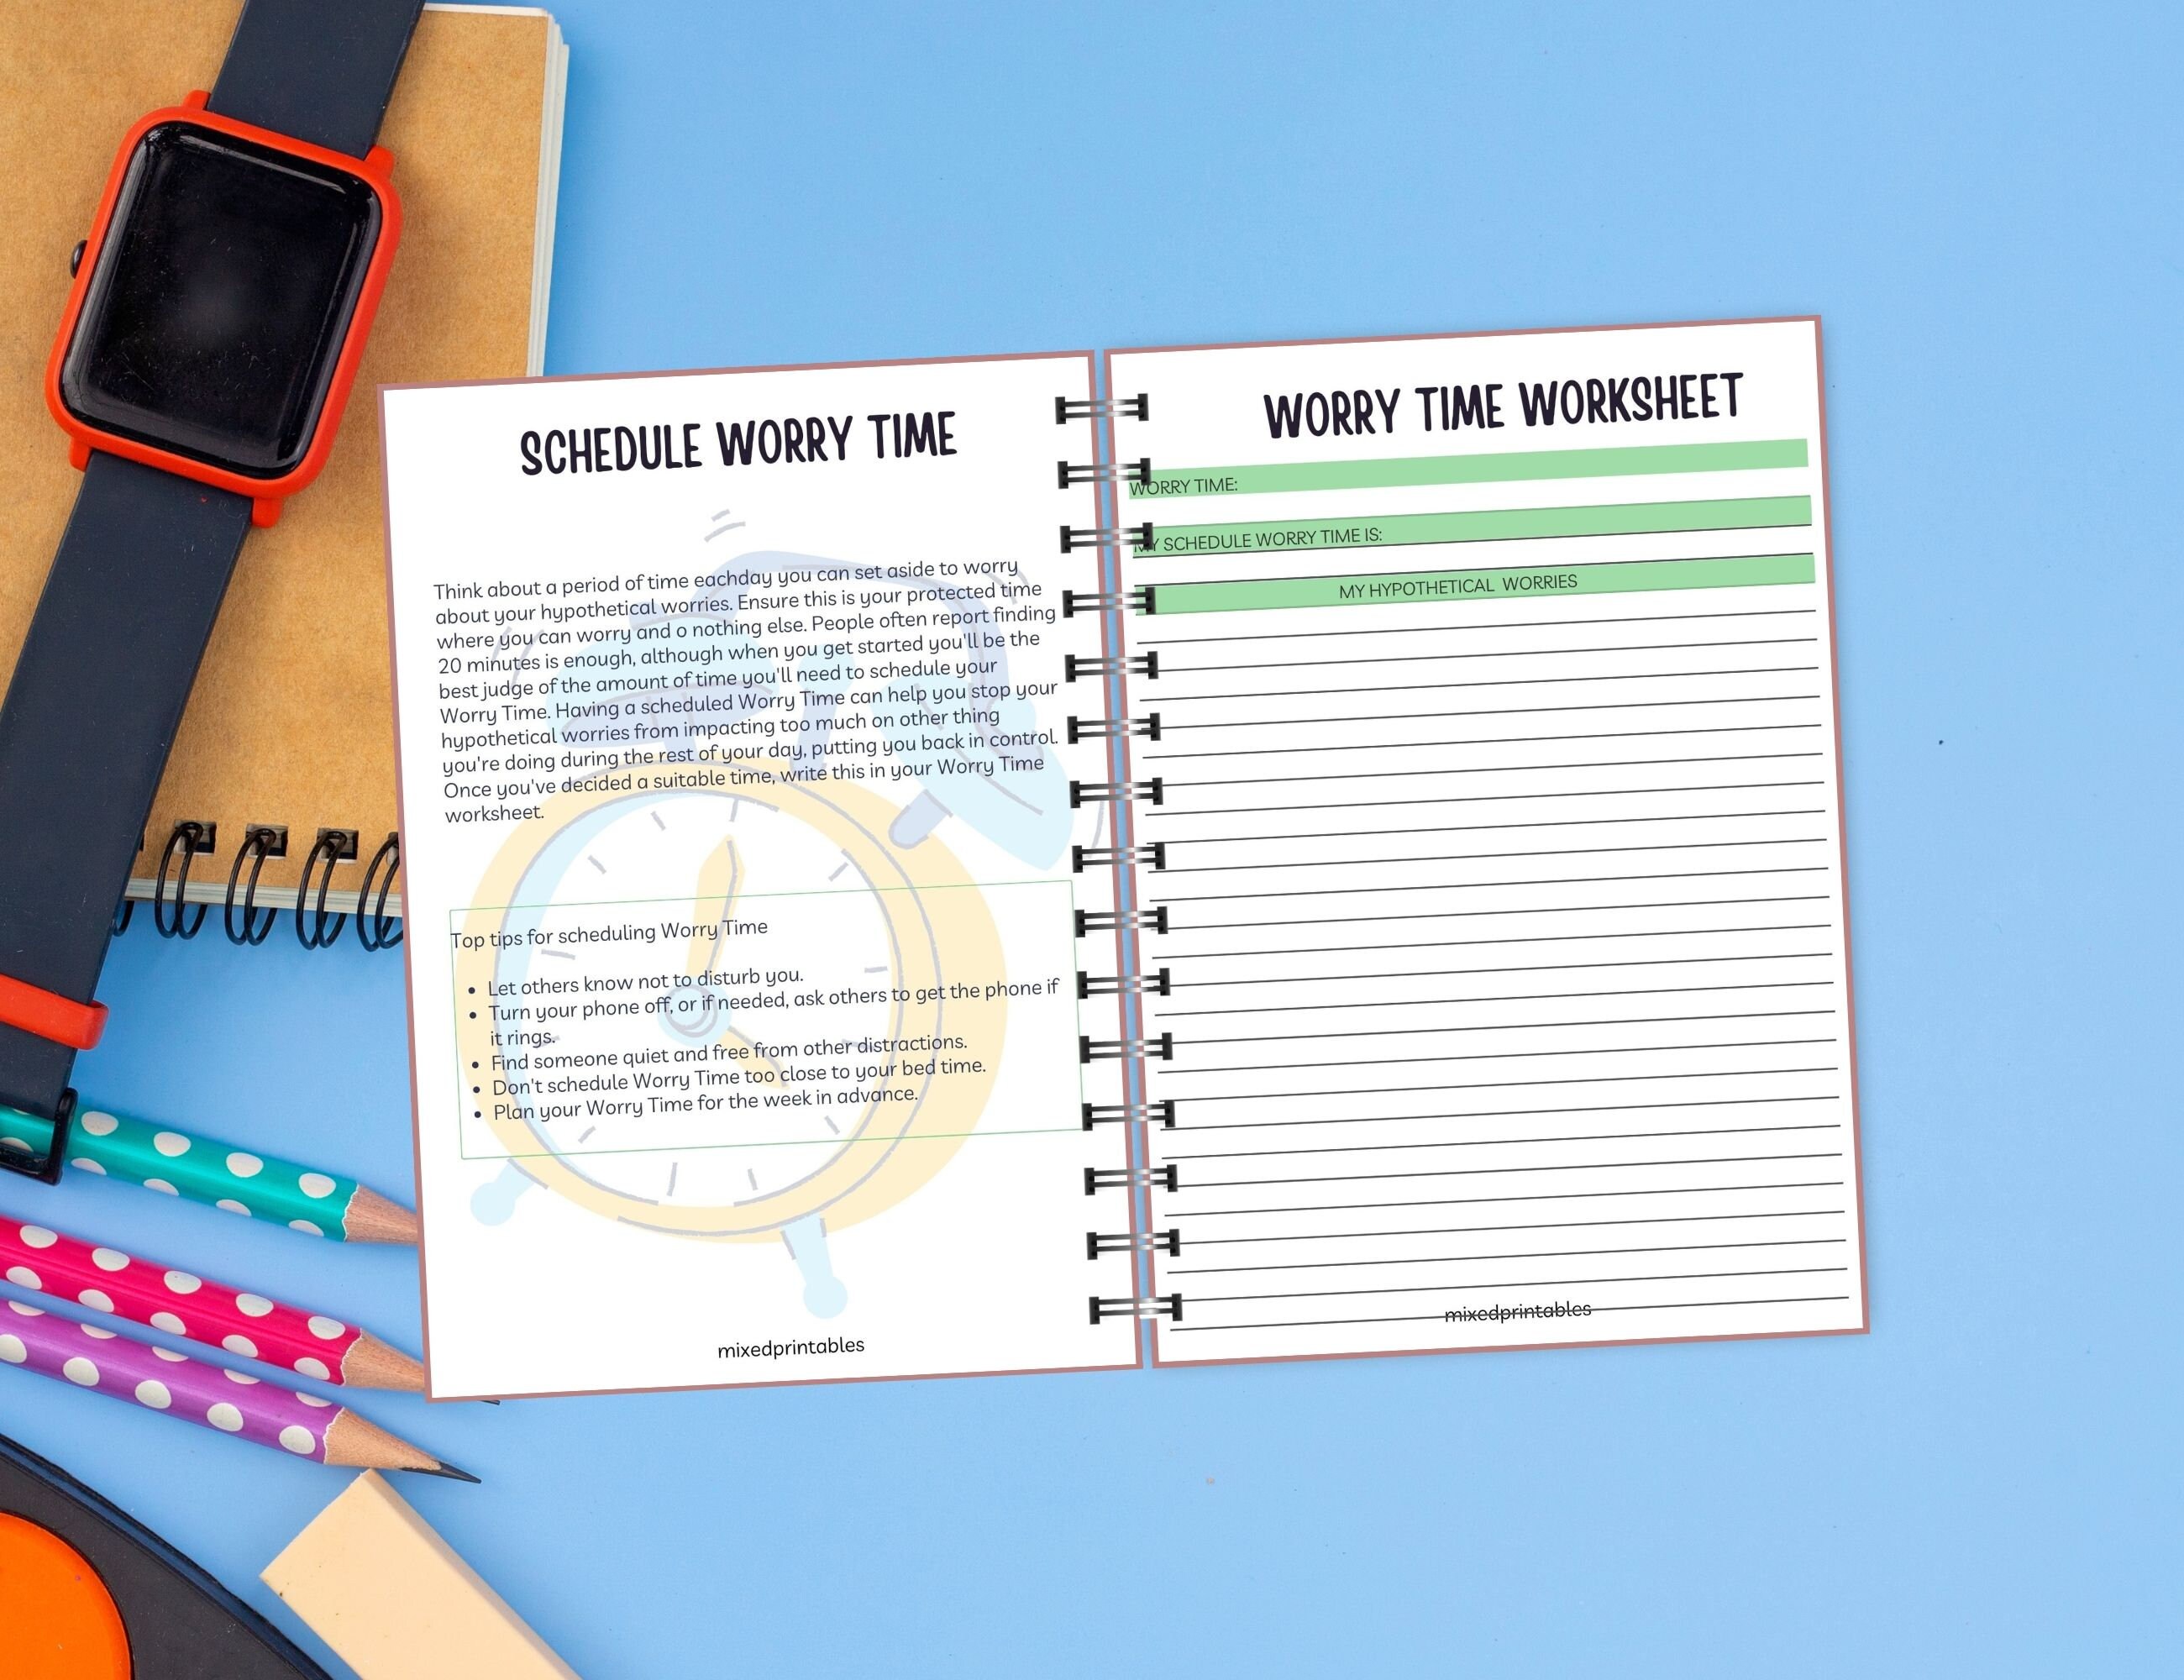 SCHEDULE WORRY TIME
Think about a period of time eachday you can set aside to worry
about your hypothetical worries. Ensure this is your protected time
where you can worry and o nothing else. People often report finding
20 minutes is enough, although when you get started you'll be the
best judge of the amount of time you'll need to schedule your
Worry Time. Having a scheduled Worry Time can help you stop your
hypothetical worries from impacting too much on other thing
you're doing during the rest of your day, putting you back in control.
Once you've decided a suitable time, write this in your Worry Time
worksheet.
Top tips for scheduling Worry Time
• Let others know not to disturb you.
• Turn your phone off, or if needed, ask others to get the phone if
it rings.
• Find someone quiet and free from other distractions.
• Don't schedule Worry Time too close to your bed time.
• Plan your Worry Time for the week in advance.
mixedprintables
WORRY TIME WORKSHEET
WORRY TIME:
MY SCHEDULE WORRY TIME IS:
MY HYPOTHETICAL WORRIES
mixedprintables